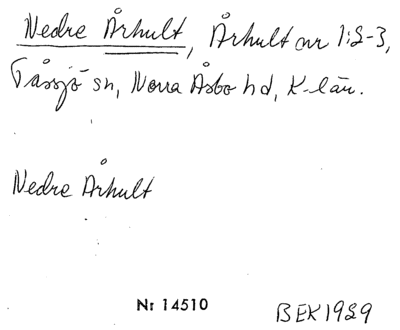 Nedre Århult, Århult nr 1:2-3,
Tåssjö sn, Norra Åsbo hd, K-län.
Nedre Århult
Nr 14510
BEK 1929